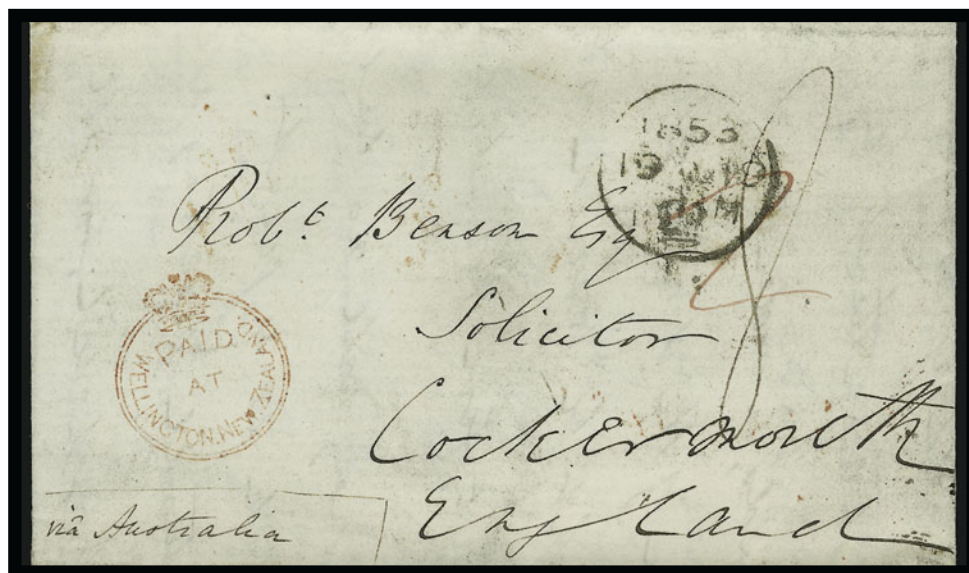 1853
Robt. Benson Esq
Solicitor
Cockermouth
England
PAID
AT
WELLINGTON. NEW ZEALAND
viâ Australia
8
2